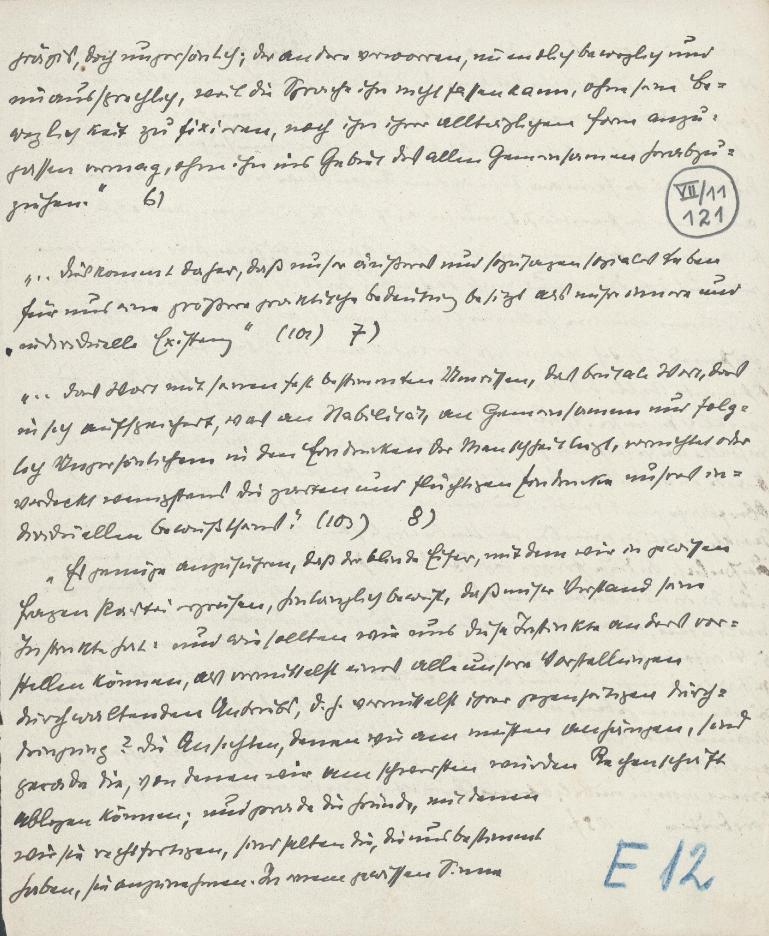 präzis, doch unpersönlich; der andere verworren, unendlich beweglich und
unaussprechlich, weil die Sprache ihn nicht fassen kann, ohne seine Be=
weglichkeit zu fixieren, noch ihn ihrer alltäglichen Form anzu=
passen vermag, ohne ihn ins Gebiet des allen Gemeinsamen herabzu=
ziehen." 6)
VII/11
121
„.. Dies kommt daher, daß unser äußeres und sozusagen soziales Leben
für uns eine größere praktische Bedeutung besitzt als unsere innere und
individuelle Existenz" (102) 7)
„.. das Wort mit seinen fest bestimmten Umrissen, das brutale Wort, das
in sich aufspeichert, was an Stabilität, an Gemeinsamem und folg=
lich Unpersönlichem in den Eindrücken der Menschheit liegt, vernichtet oder
verdeckt wenigstens die zarten und flüchtigen Eindrücke unseres in=
dividuellen Bewußtseins." (103) 8)
„Es genüge anzuführen, daß der blinde Eifer, mit dem wir in gewissen
Fragen Partei ergreifen, hinlänglich beweist, daß unser Verstand seine
Instinkte hat: und wie sollten wir uns diese Instinkte anders vor=
stellen können, als vermittelst eines alle unsere Vorstellungen
durchwaltenden Antriebs, d.h. vermittelst ihrer gegenseitigen Durch=
dringung? Die Ansichten, denen wir am meisten anhängen, sind
gerade die, von denen wir am schwersten würden Rechenschaft
ablegen können; und gerade die Gründe, mit denen
wir sie rechtfertigen, sind selten die, die uns bestimmt
haben, sie anzunehmen. In einem gewissen Sinne
E 12